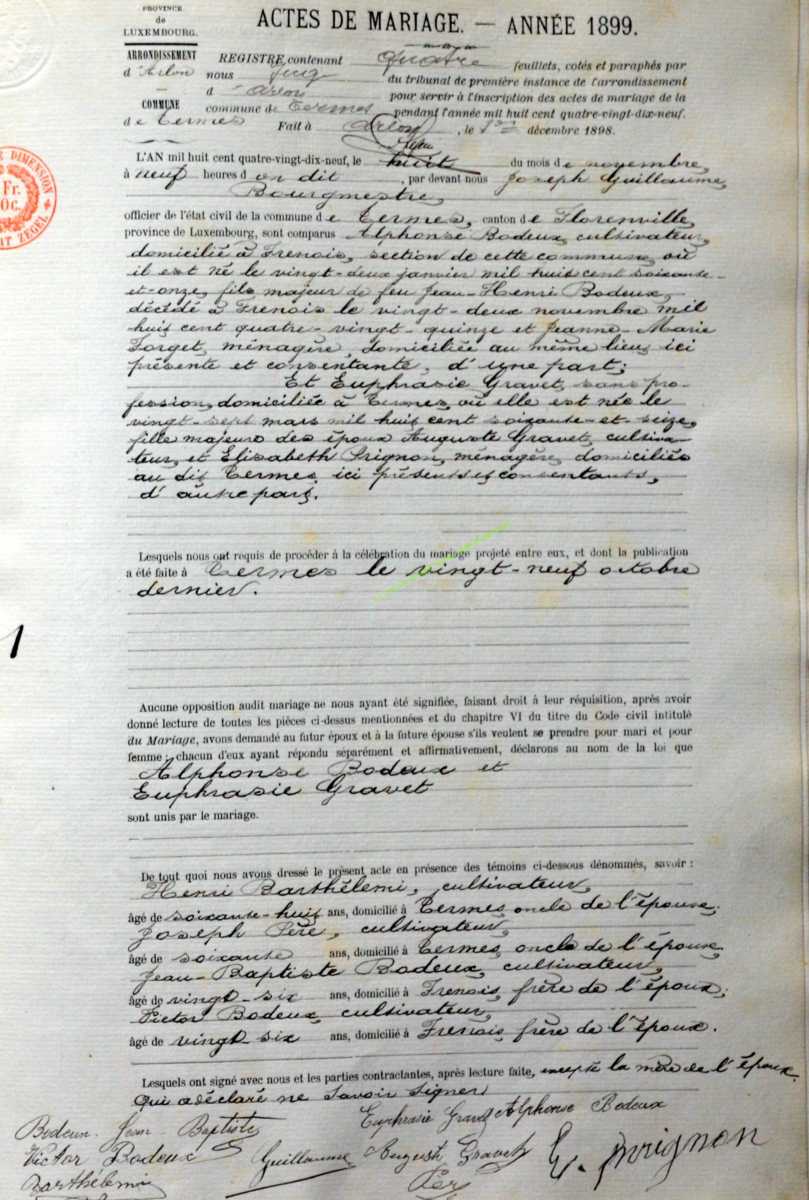 PROVINCE
de
LUXEMBOURG.
ARRONDISSEMENT
d'Arlon
COMMUNE
de Termes
ACTES DE MARIAGE. — ANNÉE 1899.
REGISTRE, contenant Quatre feuillets, cotés et paraphés par
nous Juge du tribunal de première instance de l'arrondissement
d'Arlon pour servir à l'inscription des actes de mariage de la
commune de Termes pendant l'année mil huit cent quatre-vingt-dix-neuf.
Fait à Arlon, le décembre 1898.
L'AN mil huit cent quatre-vingt-dix-neuf, le huit du mois de novembre,
à neuf heures d en dit, par devant nous Joseph Guillaume,
Bourgmestre,
officier de l'état civil de la commune de Termes, canton de Florenville,
province de Luxembourg, sont comparus Alphonse Bodeux, cultivateur,
domicilié à Frenois, section de cette commune, où
il est né le vingt-deux janvier mil huit cent soixante-
et-onze, fils majeur de feu Jean-Henri Bodeux,
décédé à Frenois le vingt-deux novembre mil
huit cent quatre-vingt-quinze et Jeanne-Marie
Forget, ménagère, domiciliée au même lieu, ici
présente et consentante, d'une part;
Et Euphrasie Gravet, sans pro-
fession, domiciliée à Termes, où elle est née le
vingt-sept mars mil huit cent soixante-et-seize,
fille majeure des époux Auguste Gravet, cultiva-
teur, et Elisabeth Prignon, ménagère, domiciliés
au dit Termes, ici présents et consentants,
d'autre part.
Lesquels nous ont requis de procéder à la célébration du mariage projeté entre eux, et dont la publication
a été faite à Termes le vingt-neuf octobre
dernier.
1
Aucune opposition audit mariage ne nous ayant été signifiée, faisant droit à leur réquisition, après avoir
donné lecture de toutes les pièces ci-dessus mentionnées et du chapitre VI du titre du Code civil intitulé
du Mariage, avons demandé au futur époux et à la future épouse s'ils veulent se prendre pour mari et pour
femme ; chacun d'eux ayant répondu séparément et affirmativement, déclarons au nom de la loi que
Alphonse Bodeux et
Euphrasie Gravet
sont unis par le mariage.
De tout quoi nous avons dressé le présent acte en présence des témoins ci-dessous dénommés, savoir :
Henri Barthélemi, cultivateur,
âgé de soixante-huit ans, domicilié à Termes, oncle de l'épouse,
Joseph Père, cultivateur,
âgé de soixante ans, domicilié à Termes, oncle de l'épouse,
Jean-Baptiste Bodeux, cultivateur,
âgé de vingt-six ans, domicilié à Frenois, frère de l'époux;
Victor Bodeux, cultivateur,
âgé de vingt-six ans, domicilié à Frenois, frère de l'époux.
Lesquels ont signé avec nous et les parties contractantes, après lecture faite, excepté la mère de l'époux
qui a déclaré ne savoir signer
Euphrasie Gravet Alphonse Bodeux
Bodeux Jean Baptiste
Victor Bodeux Guillaume August Gravet E. Prrignon
Barthélemi